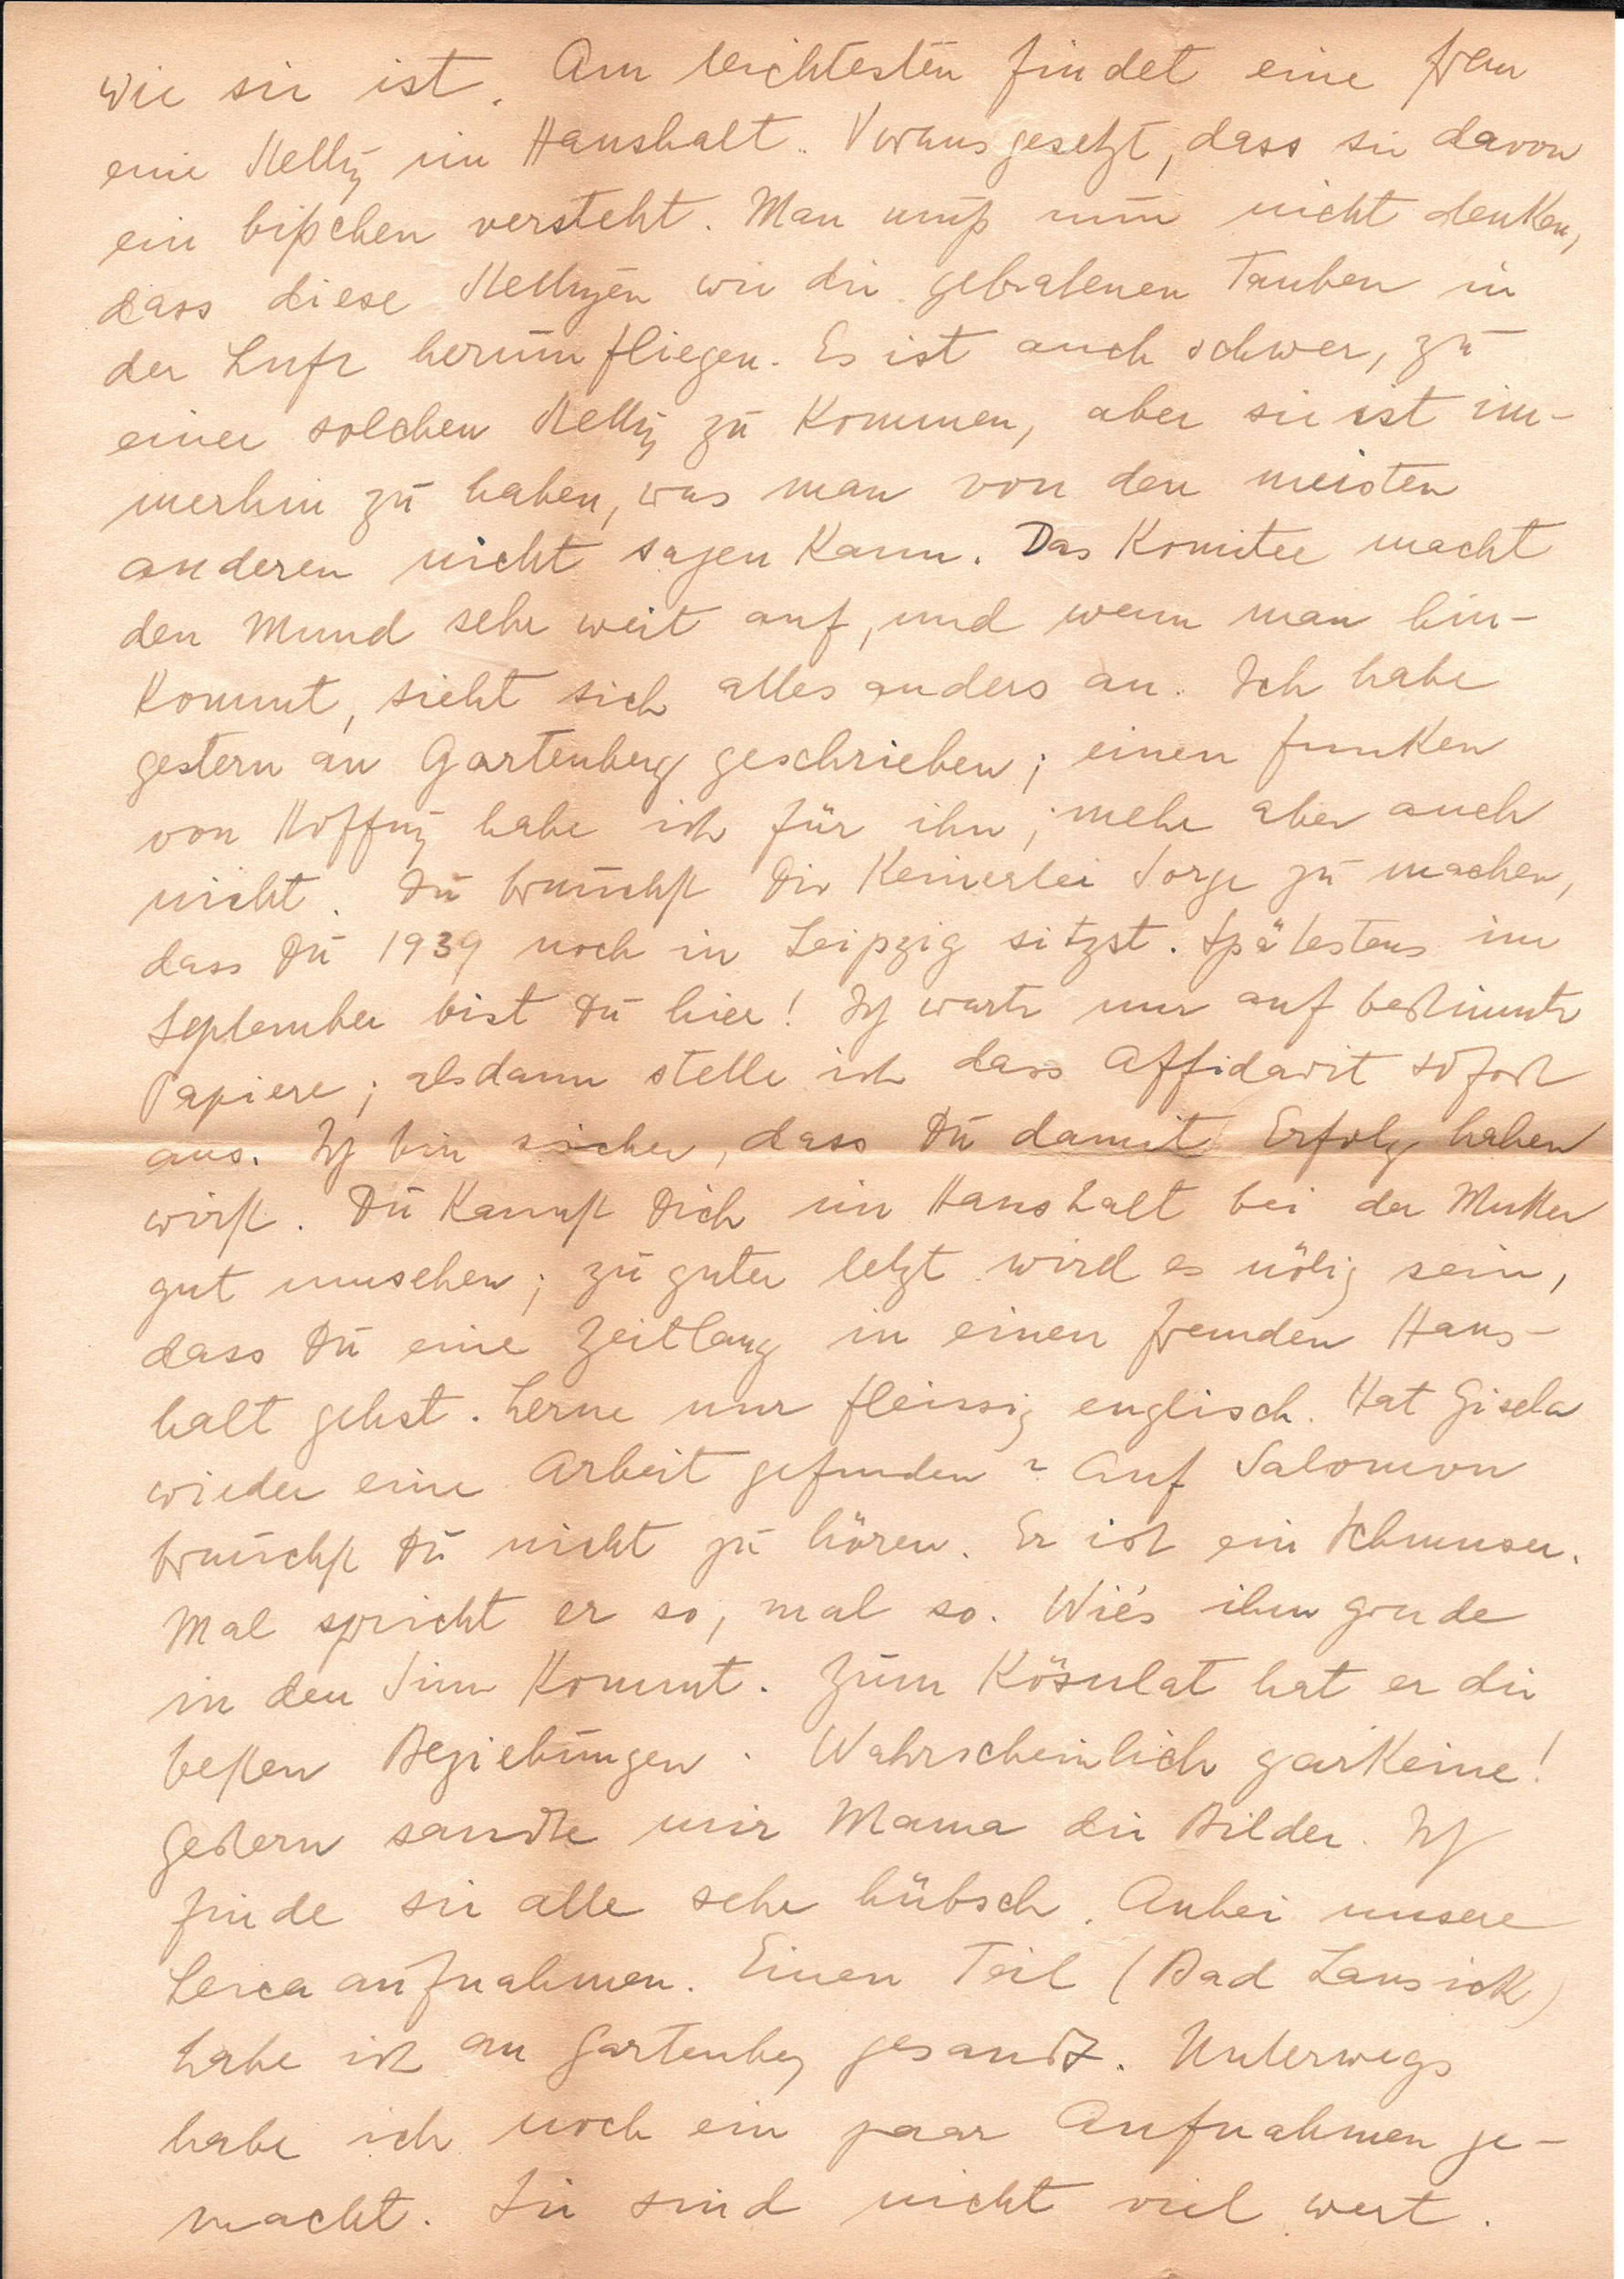 wie sie ist. Am leichtesten findet eine Frau
eine Stellg im Haushalt. Vorausgesetzt, dass sie davon
ein bißchen versteht. Man muß nun nicht denken,
dass diese Stellngen wie die gebratenen Tauben in
der Luft herumfliegen. Es ist auch schwer, zu
einer solchen Stellg zu kommen, aber sie ist im-
merhin zu haben, was man von den meisten
anderen nicht sagen kann. Das Komitee macht
den Mund sehr weit auf, und wenn man hin-
kommt, sieht sich alles anders an. Ich habe
gestern an Gartenberg geschrieben; einen Funken
von Hoffng habe ich für ihn; mehr aber auch
nicht. Du brauchst Dir keinerlei Sorge zu machen,
dass Du 1939 noch in Leipzig sitzst. Spätestens im
September bist Du hier! Ich warte nur auf bestimmte
Papiere; alsdann stelle ich dass Affidavit sofort
aus. Ich bin sicher, dass Du damit Erfolg haben
wirst. Du kannst Dich im Haushalt bei der Mutter
gut umsehen; zu guter letzt wird es nötig sein,
dass Du eine Zeitlang in einen fremden Haus-
halt gehst. Lerne nur fleissig englisch. Hat Gisela
wieder eine Arbeit gefunden? Auf Salomon
brauchst Du nicht zu hören. Er ist ein Schmuser.
Mal spricht er so, mal so. Wie's ihm grade
in den Sinn kommt. Zum Kösulat hat er die
besten Beziehungen. Wahrscheinlich garkeine!
Gestern sandte mir Mama die Bilder. Ich
finde sie alle sehr hübsch. Anbei unsere
Leica aufnahmen. Einen Teil (Bad Lausick)
habe ich an Gartenberg gesandt. Unterwegs
habe ich noch ein paar Aufnahmen ge-
macht. Sie sind nicht viel wert.